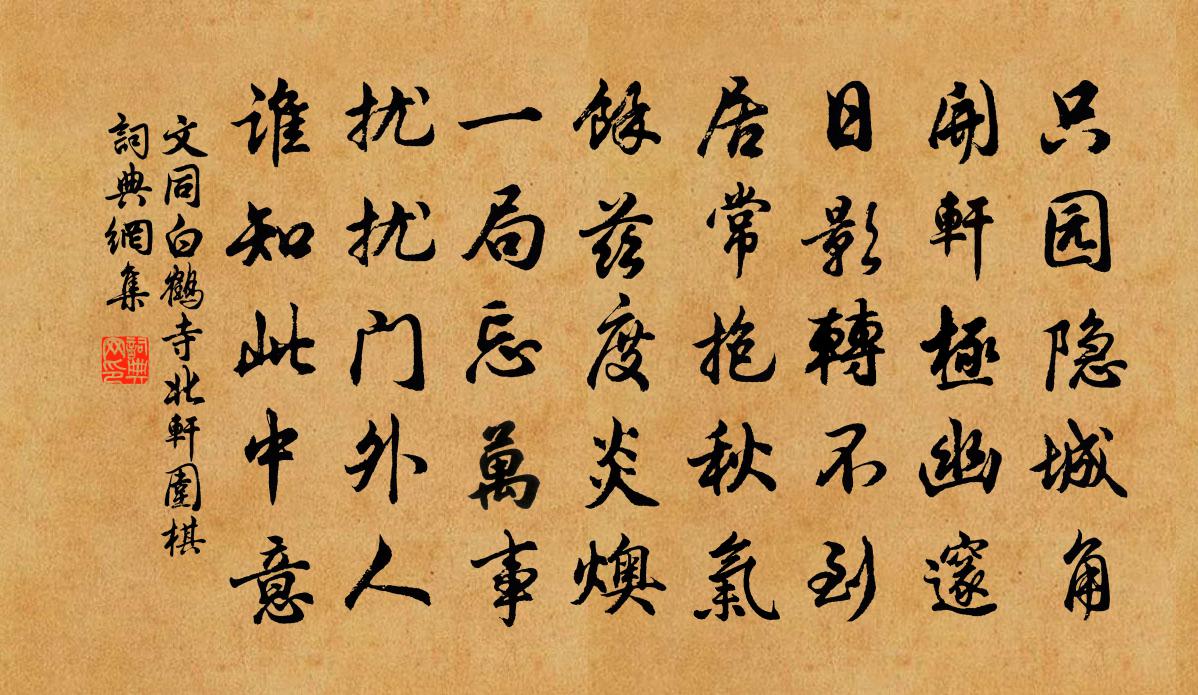 只园隐城角
開軒極幽邃
日影轉不到
居常抱秋氣
餘兹度炎燠
一局忘萬事
扰扰门外人
誰知此中意
文同白鶴寺北軒圍棋
詞典網集
詞典网印